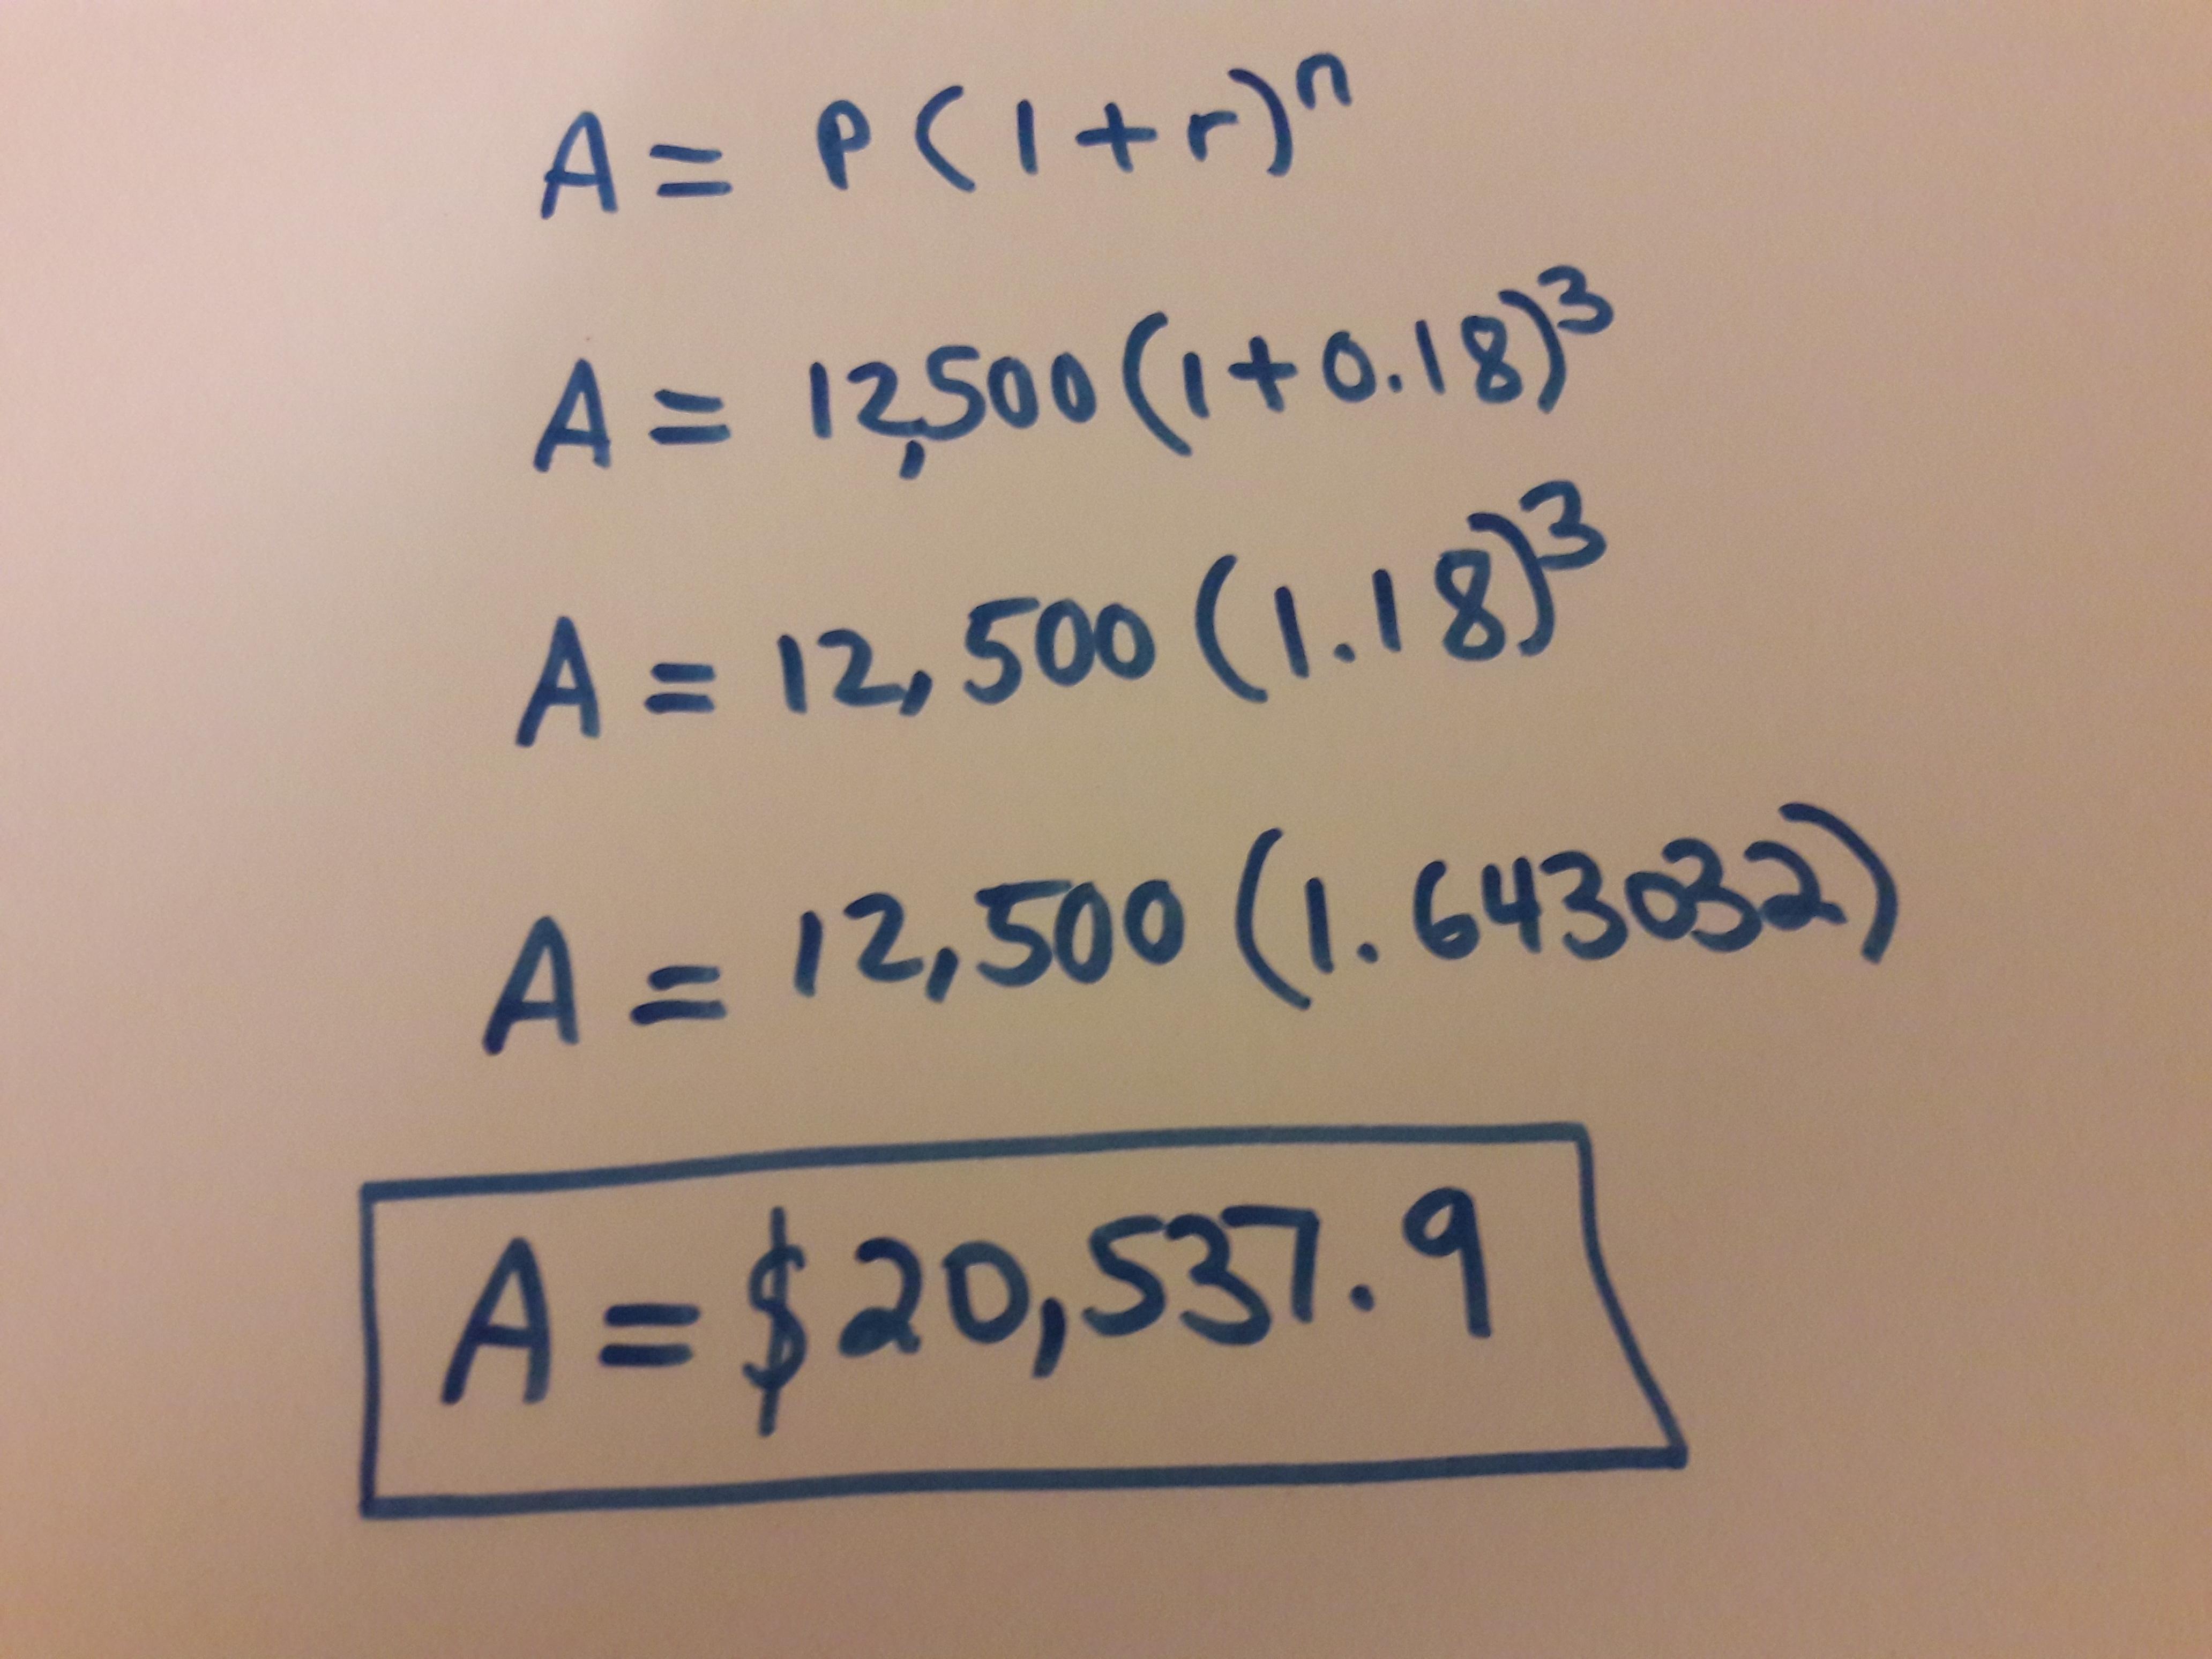 A = P(1+r)ⁿ
A = 12,500(1+0.18)³
A = 12,500(1.18)³
A = 12,500(1.643032)
A = $20,537.9